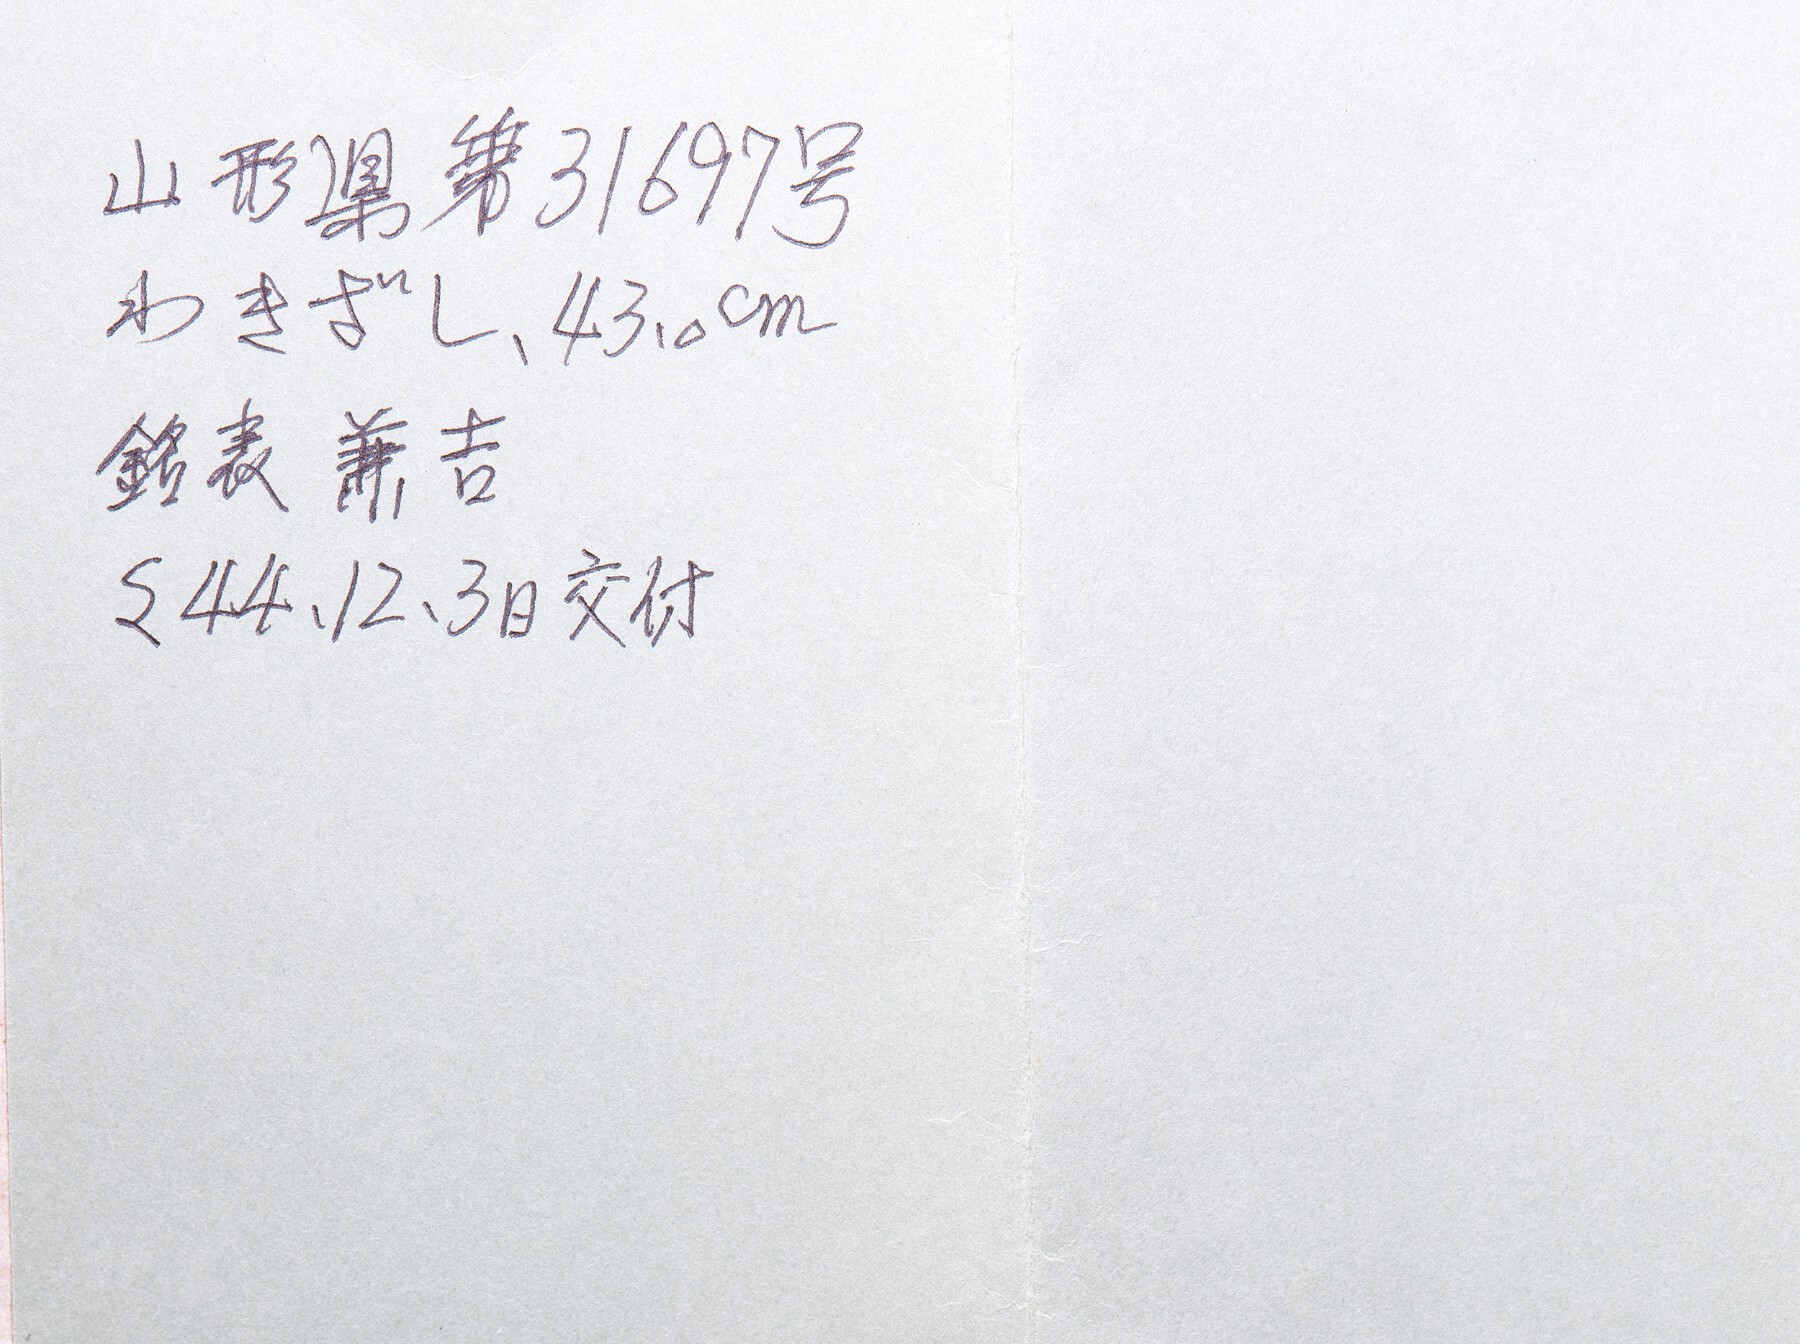 山形県第31697号
わきざし、43.0cm
銘表 兼吉
S44、12、3日交付